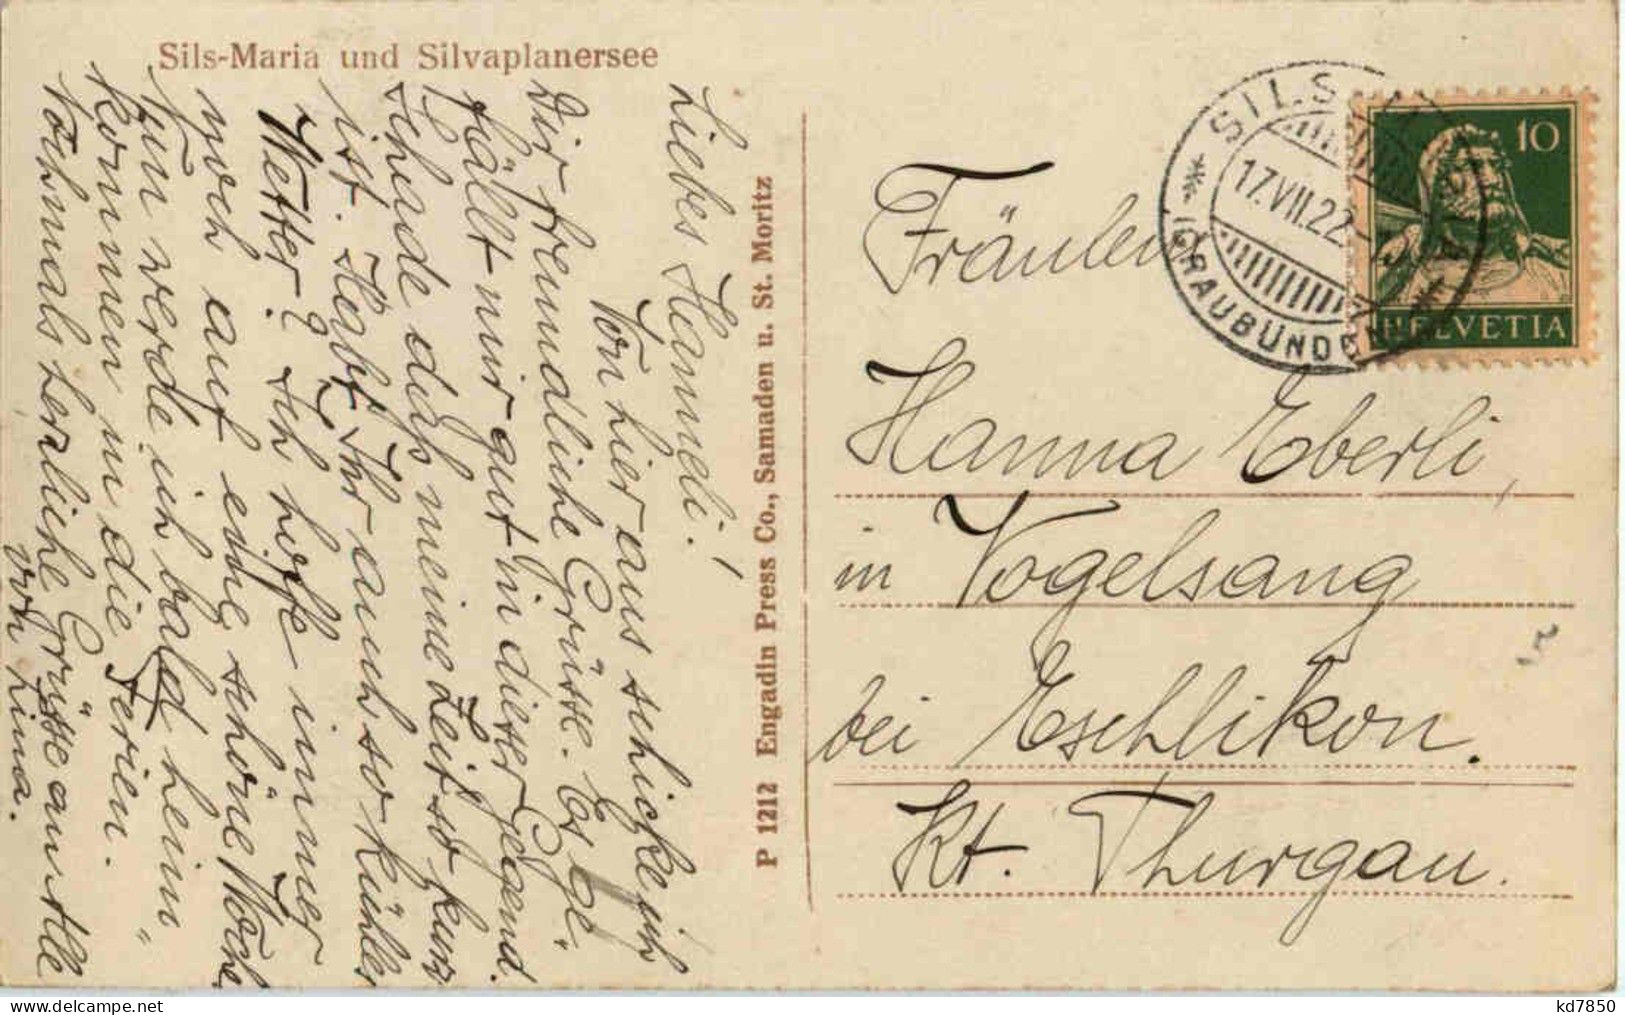 Sils-Maria und Silvaplanersee
Liebes Hanneli!
Von hier aus schicke ich
Dir freundliche Grüsse. Es ge-
fällt mir gut in dieser Gegend.
Schade daß meine Zeit so kurz
ist. Habt Ihr auch so kühles
Wetter? Ich hoffe immer
noch auf eine schöne Woche
Nun werde ich bald heim
kommen in die Ferien.
Vohrmals herzliche Grüsse an alle
von Lina.
P 1212 Engadin Press Co., Samaden u. St. Moritz
SILS
17.VII.22
(GRAUBÜNDEN)
10
HELVETIA
Fräulein
Hanna Eberli,
in Vogelsang
bei Eschlikon.
Kt. Thurgau.
kd7850